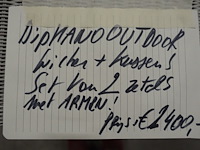 DipMANO OUTDOOR
Wicker + Kussens!
Set Van 2 zetels
met ARMEN!
prijs: € 2400,-